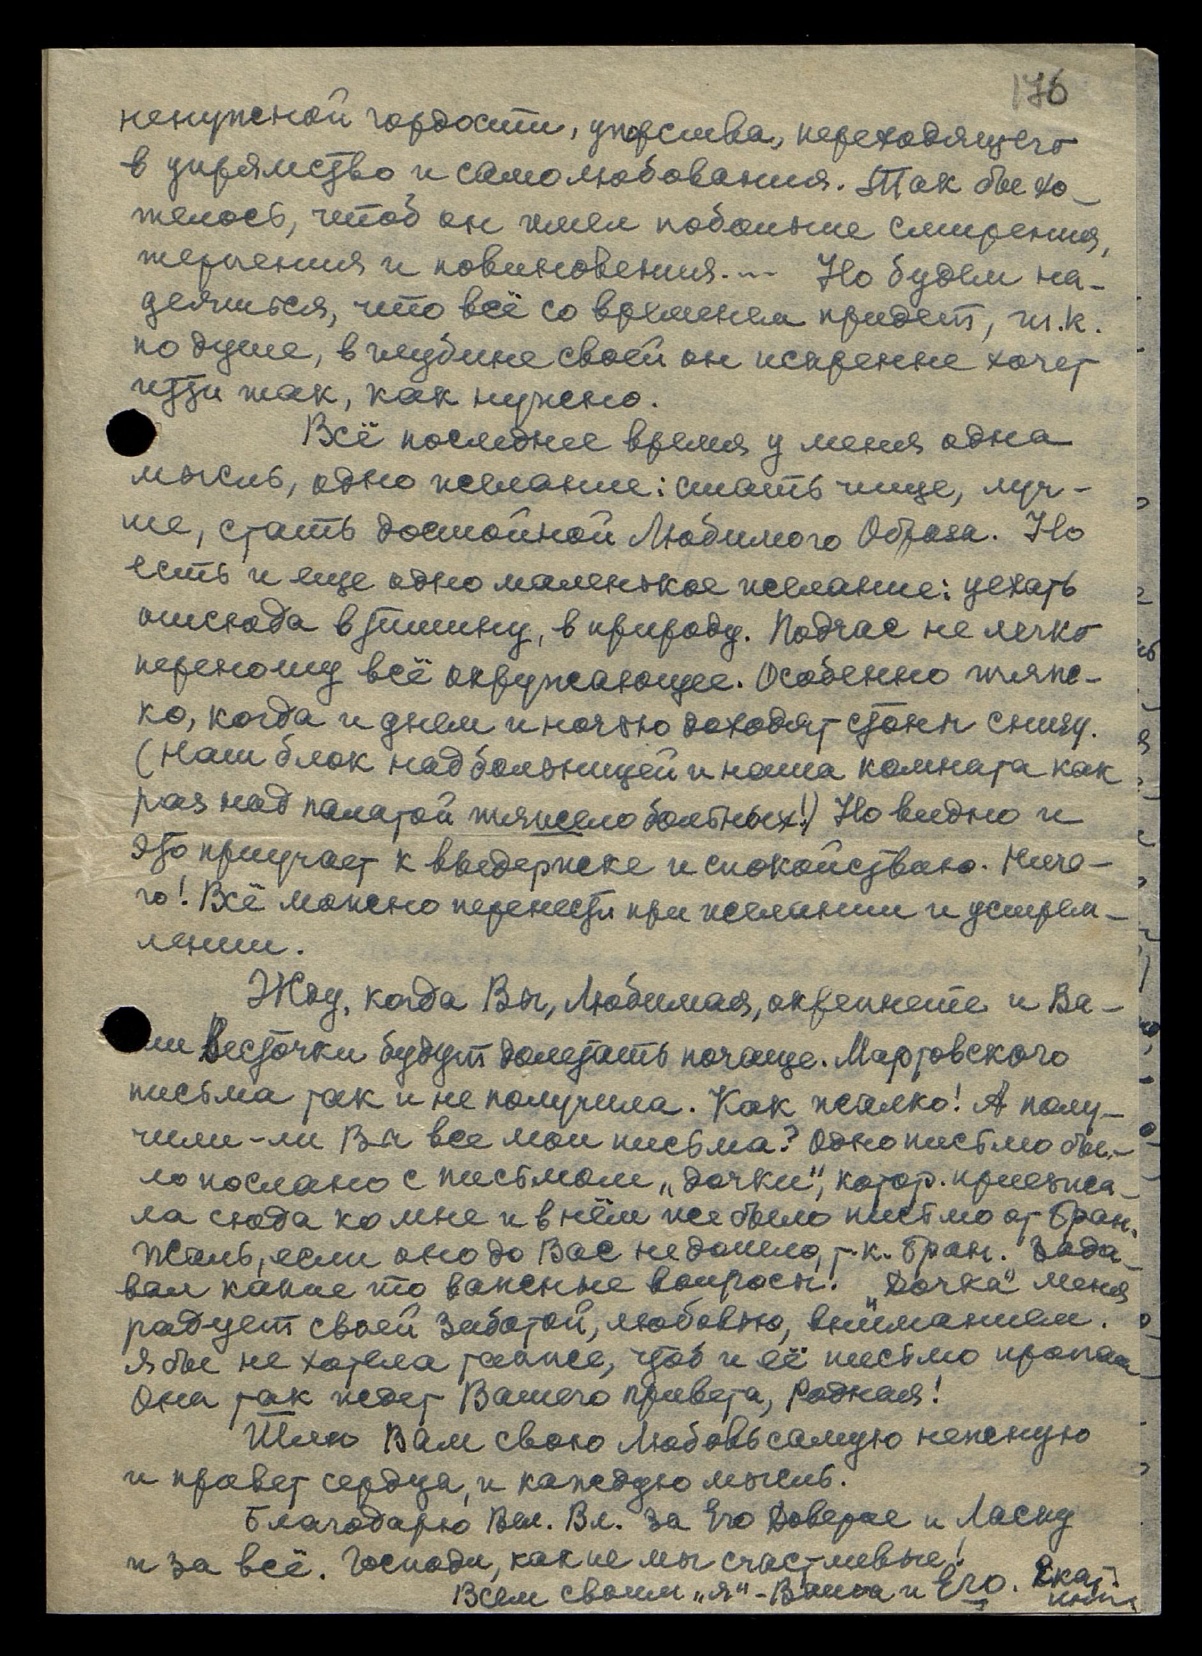 176
ненужной гордости, упорства, переходящего
в упрямство и самолюбования. Так бы хо-
телось, чтоб он имел побольше смирения,
терпения и повиновения.... Но будем на-
деяться, что всё со временем придет, т.к.
по душе, в глубине своей он искренне хочет
идти так, как нужно.
Всё последнее время у меня одна
мысль, одно желание: стать чище, луч-
ше, стать достойной Любимого Образа. Но
есть и еще одно маленькое желание: уехать
отсюда в тишину, в природу. Подчас не легко
переношу всё окружающее. Особенно тяже-
ко, когда и днем и ночью доходят стоны снизу.
(Наш блок над больницей и наша комната как
раз над палатой тяжело больных!) Но видно и
это приучает к выдержке и спокойствию. Ниче-
го! Всё можно перенести при желании и устрем-
лении.
Жду, когда Вы, Любимая, окрепнете и Ва-
ши Весточки будут долетать почаще. Мартовского
письма так и не получила. Как жалко! А полу-
чили-ли Вы все мои письма? Одно письмо бы-
ло послано с письмом „дочки", котор. приезжа-
ла сюда ко мне и в нём же было письмо от Гран.
Жаль, если оно до Вас не дошло, т.к. Гран. зада-
вал какие то важные вопросы. „Дочка" меня
радует своей заботой, любовью, вниманием.
Я бы не хотела также, чтоб и её письмо пропал
Она так ждет Вашего привета, Родная!
Шлю Вам свою Любовь самую нежную
и привет сердца, и каждую мысль.
Благодарю Вел. Вл. за Его Доверие и Ласку
и за всё. Господи, какие мы счастливые!
Всем своим „я" - Ваша и Его. Екат.